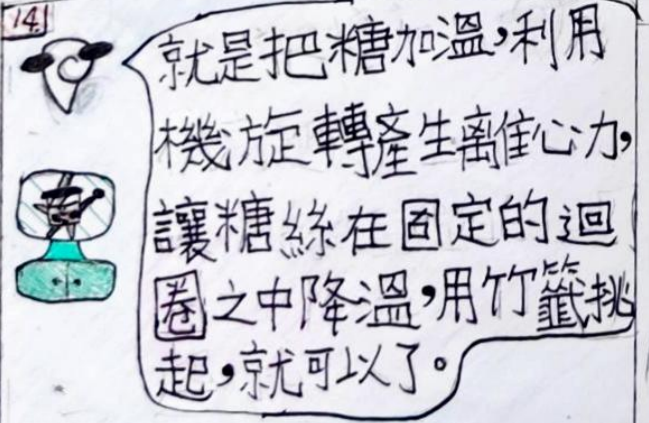 14.
就是把糖加溫，利用
機旋轉產生離心力，
讓糖絲在固定的迴
圈之中降溫，用竹籤挑
起，就可以了。